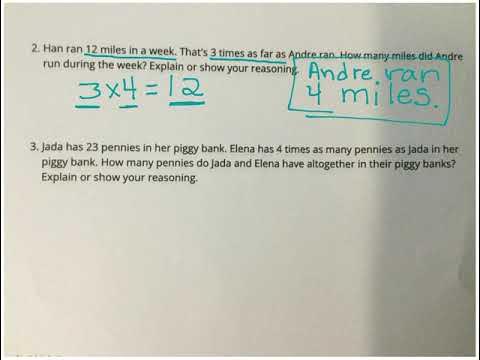 2. Han ran 12 miles in a week. That's 3 times as far as Andre ran. How many miles did Andre
run during the week? Explain or show your reasoning.
Andre ran
4 miles.
3x4=12
3. Jada has 23 pennies in her piggy bank. Elena has 4 times as many pennies as Jada in her
piggy bank. How many pennies do Jada and Elena have altogether in their piggy banks?
Explain or show your reasoning.